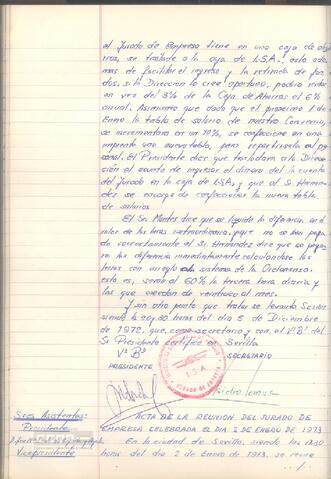 el Jurado de Empresa tiene en una caja de aho
rros, se traslade a la caja de I.S.A., esto ade
mas de facilitar el ingreso y la retirada de fon
dos, si la Dirección lo cree oportuno, podría indu
en vez del 3% de la Caja de Ahorros el 6%
anual. Asimismo que dado que el proximo 1 de
Enero la tabla de salario de nuestro Convenio,
se incrementara en un 10%, se confeccione en una
imprenta una nueva tabla, para repartirsela al per
sonal. El Presidente dice que trasladara a la Direc
ción el asunto de ingresar el dinero del la cuenta
del Jurado en la caja de I.S.A, y que el Sr Hernan
dez se encarga de confeccionar la nueva tabla
de salarios.
El Sr. Montes dice que se liquide la diferencia del
valor de las horas extraordinarias, que no se han paga
do correctamente el Sr. Hernandez dice que se paga
ra la diferencia inmediatamente calculandose las
horas con arreglo al sistema de la Ordenanza,
esto es, seran al 60% la tercera hora diaria y
las que excedan de veintiseis al mes.
Y sin otro punto que tratar se levanta Sesión
siendo las 20,00 horas del dia 5 de Diciembre
de 1972, que, como secretario y con el Vº Bº del
Sr Presidente certifico en Sevilla
Vº Bº
PRESIDENTE
SECRETARIO
I.S.A
JURADO DE EMPRESA
Sres Asistentes:
Presidente
Vicepresidente
ACTA DE LA REUNIÓN DEL JURADO DE
EMPRESA CELEBRADA EL DIA 2 ENERO DE 1973
En la ciudad de Sevilla, siendo las
horas del dia 2 de Enero de 1973, se reune